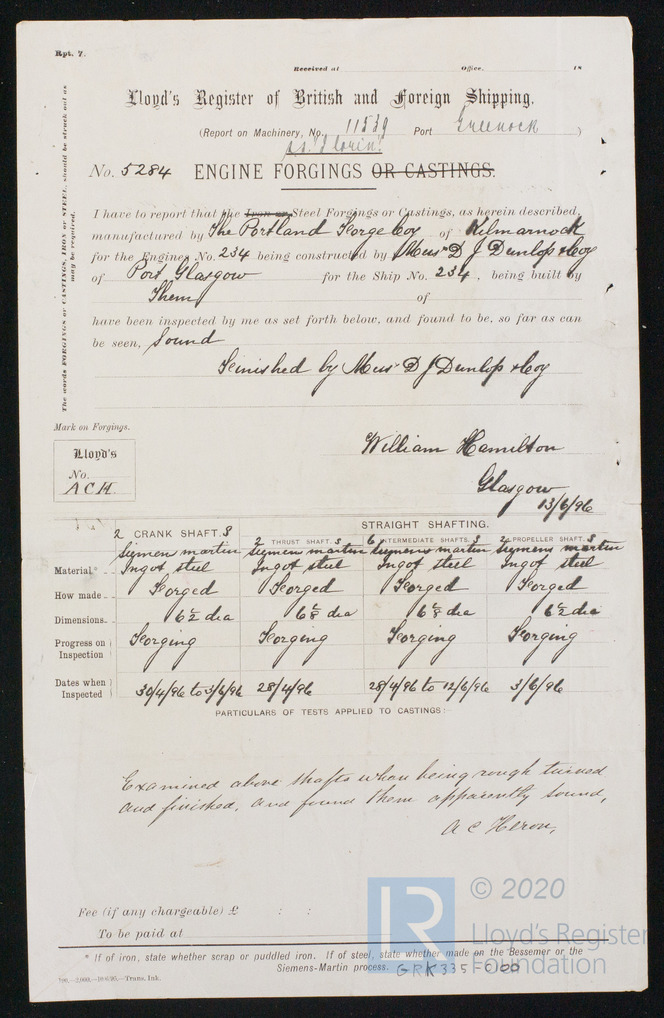 Rpt. 7.
Received at Office. 18
Lloyd's Register of British and Foreign Shipping,
(Report on Machinery, No. 11539 Port Greenock )
ss. Florin.
No. 5284 ENGINE FORGINGS OR CASTINGS.
I have to report that the Iron or Steel Forgings or Castings, as herein described,
manufactured by The Portland Forge Coy of Kilmarnock
for the Engines No. 234 being constructed by Mess D J Dunlop & Coy
of Port Glasgow for the Ship No. 234, being built by
Them of
have been inspected by me as set forth below, and found to be, so far as can
be seen, Sound
Finished by Mess D J Dunlop & Coy
The words FORGINGS or CASTINGS, IRON or STEEL, should be struck out as
may be required.
Mark on Forgings.
Lloyd's
No.
A C H.
William Hamilton
Glasgow
13/6/96
STRAIGHT SHAFTING.
2 CRANK SHAFT. S 2 THRUST SHAFT. S 6 INTERMEDIATE SHAFTS. S 2 PROPELLER SHAFT. S
Siemen martin Siemen martin Siemens martin Siemens martin
Material* Ingot steel Ingot steel Ingot steel Ingot steel
How made Forged Forged Forged Forged
Dimensions 6½ dia 6⅛ dia 6⅛ dia 6½ dia
Progress on
Inspection Forging Forging Forging Forging
Dates when
Inspected 30/4/96 to 3/6/96 28/4/96 28/4/96 to 12/6/96 3/6/96
PARTICULARS OF TESTS APPLIED TO CASTINGS:-
Examined above shafts when being rough turned
and finished, and found them apparently sound,
A C Heron,
Fee (if any chargeable) £ : :
To be paid at
* If of iron, state whether scrap or puddled iron. If of steel, state whether made on the Bessemer or the
Siemens-Martin process. GRK335-0100
Trans. Ink.
LR
© 2020
Lloyd's Register
Foundation